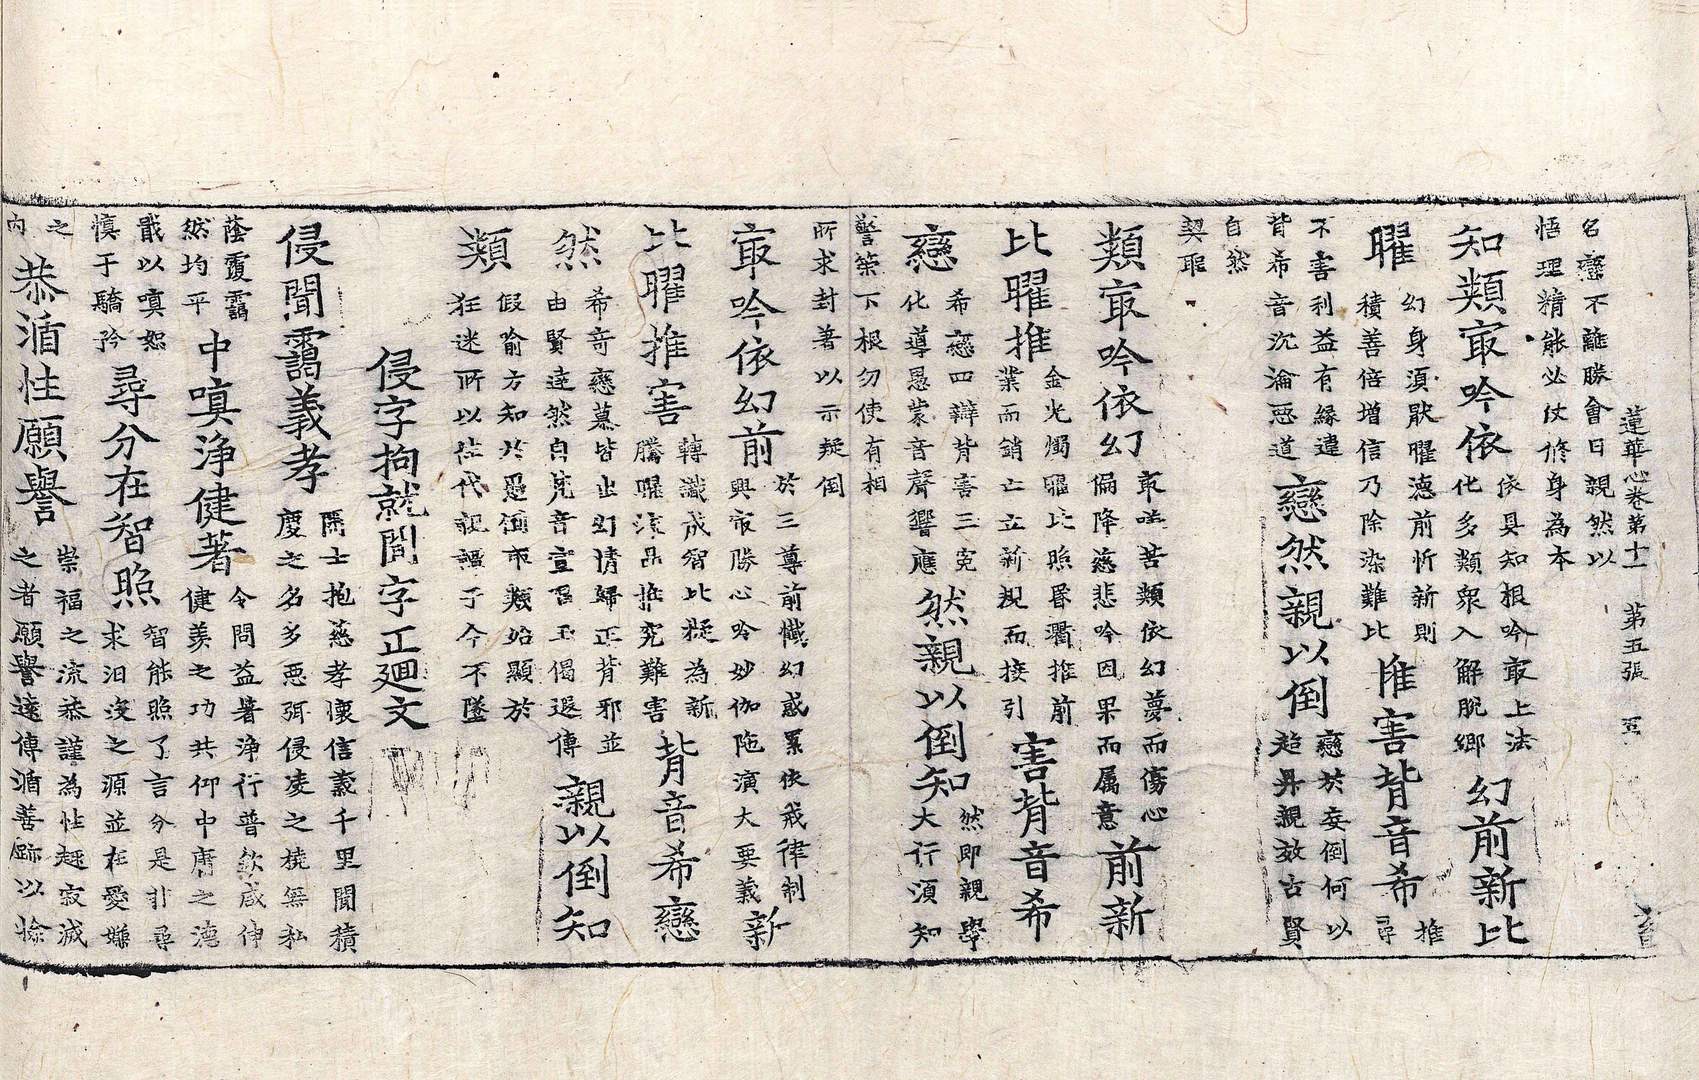 蓮華心卷第十一 第五張
名鑾不離勝會日親然以
悟理精能必仗修身為本
知類㝡吟依
依具知根吟㝡上法
化多類衆入解脫鄉
幻前新比
曜
幻身須猒曜德前忻新則
積善倍增信乃除染難比
推害背音希
推
尋
不害利益有緣違
背希音沉淪惡道
戀然親以倒
戀於妄倒何以
趍昇親效古賢
自然
契聖
類㝡吟依幻
㝡吟苦類依幻夢而傷心
偏降慈悲吟因果而属意
前新
比曜推
金光燭曜比照昏衢推前
業而銷亡立新規而接引
害背音希
戀
希戀四辯背害三寃
化導恩蒙音聲響應
然親以倒知
然即親學
大行須知
警策下根勿使有相
所求封著以示疑倒
㝡吟依幻前
於三尊前懺幻惑累依戒律制
興㝡勝心吟妙伽陁演大要義
新
比曜推害
轉識成智比擬為新
騰曜流品推究難害
背音希戀
然
希奇戀慕皆出幻情歸正背邪並
由賢達然自克音宣召玉偈遐傳
親以倒知
類
假喻方知於愚倒㝡類始顯於
狂迷所以往代親謳于今不墜
侵字拘就閒字正廻文
侵聞靄義孝
隱士抱慈孝懷信義千里聞積
慶之名多惡弭侵凌之撓無私
蔭覆靄
然均平
中嗔浄健著
令問益著浄行普欽咸伸
健羡之功共仰中庸之德
戢以嗔恕
慎于驕矜
尋分在智照
智能照了言分是非尋
求汨没之源並在愛嫌
之
内
恭循性願譽
崇福之流恭謹為性趍寂滅
之者願譽遠傳循善跡以愉